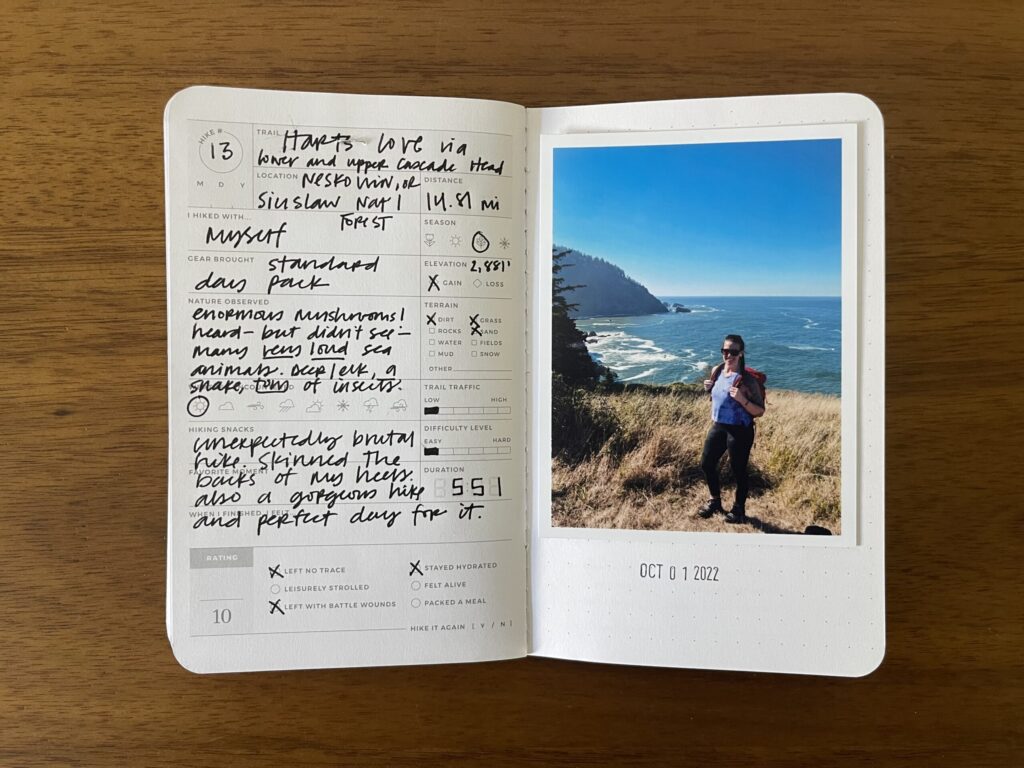 HIKE #
13
M D Y
TRAIL Harts Cove via
lower and upper Cascade Head
LOCATION Neskowin, OR
Siuslaw Nat'l
Forest
DISTANCE
14.81 mi
I HIKED WITH...
Myself
SEASON
GEAR BROUGHT standard
day pack
ELEVATION 2,881'
X GAIN LOSS
NATURE OBSERVED
enormous mushrooms!
heard - but didn't see -
many very loud sea
animals. Deep/elk, a
snake, tons of insects.
TERRAIN
X DIRT X GRASS
ROCKS X SAND
WATER FIELDS
MUD SNOW
OTHER
TRAIL TRAFFIC
LOW HIGH
HIKING SNACKS
unexpectedly brutal
hike. Skinned the
FAVORITE MOMENT
backs of my heels.
also a gorgeous hike
WHEN I FINISHED, I FELT
and perfect day for it.
DIFFICULTY LEVEL
EASY HARD
DURATION
5 5 1
RATING
10
X LEFT NO TRACE
LEISURELY STROLLED
X LEFT WITH BATTLE WOUNDS
X STAYED HYDRATED
FELT ALIVE
PACKED A MEAL
HIKE IT AGAIN [ Y / N ]
OCT 0 1 2022